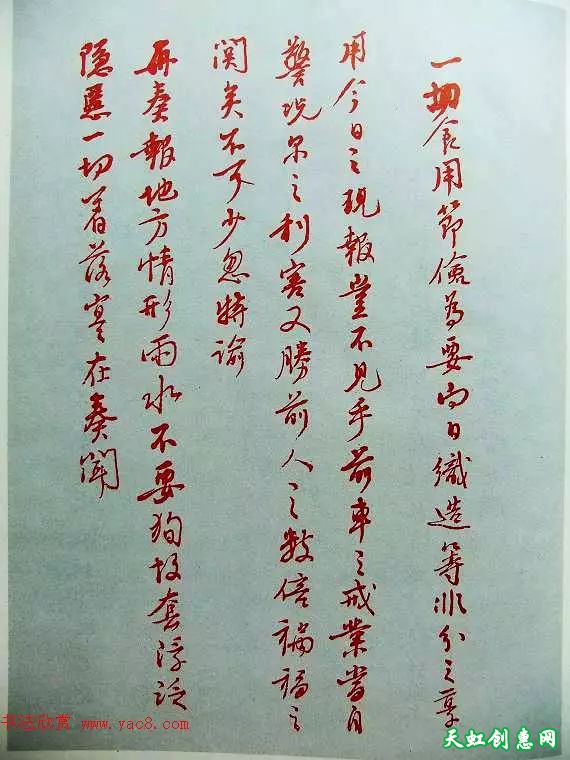 一切食用節儉為要向日織造等非分之享
用今日之現報豈不見乎前車之戒業當自
警況尔之利害又勝前人之数倍禍福之
関矣不可少忽特諭
再奏報地方情形雨水不要狥故套浮泛
隐匿一切着落寔在奏聞
书法欣赏 www.yac8.com
天虹创惠网